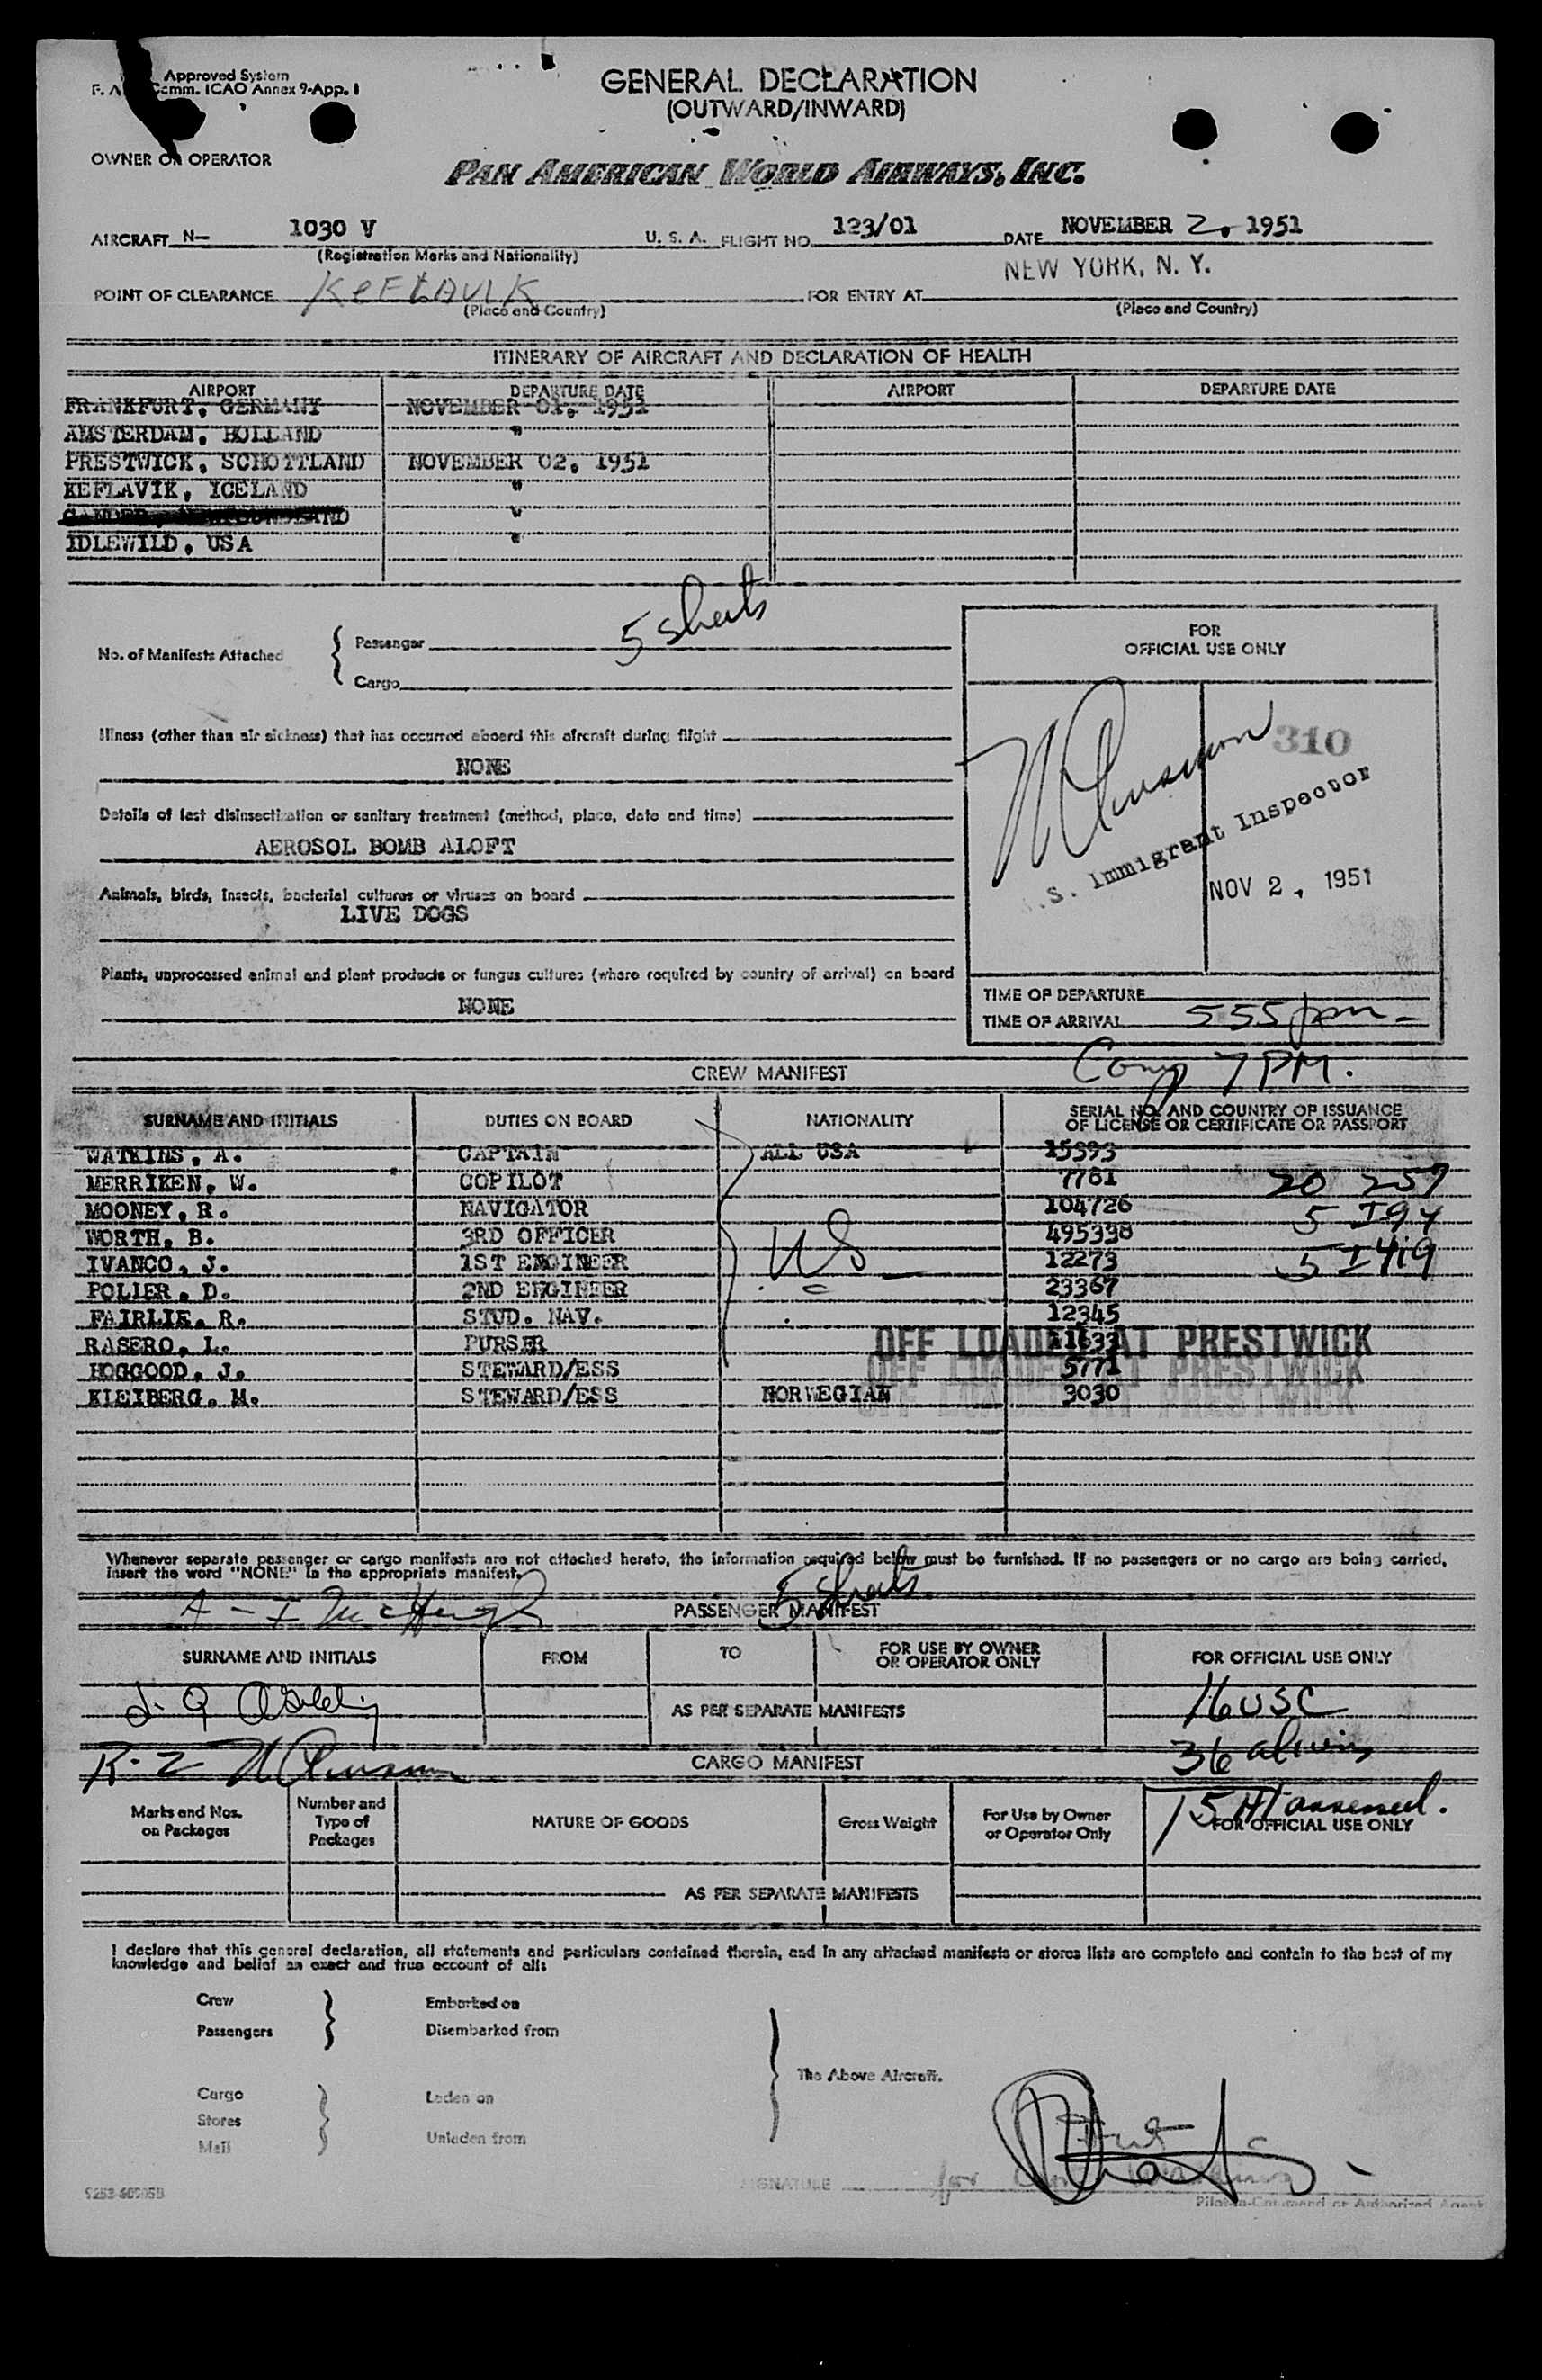 Approved System
Comm. ICAO Annex 9-App. I
GENERAL DECLARATION
(OUTWARD/INWARD)
OWNER OR OPERATOR
PAN AMERICAN WORLD AIRWAYS, INC.
AIRCRAFT N— 1030 V U. S. A. FLIGHT NO. 123/01 DATE NOVEMBER 2, 1951
(Registration Marks and Nationality)
NEW YORK, N. Y.
POINT OF CLEARANCE KEFLAVIK FOR ENTRY AT
(Place and Country) (Place and Country)
ITINERARY OF AIRCRAFT AND DECLARATION OF HEALTH
AIRPORT DEPARTURE DATE AIRPORT DEPARTURE DATE
FRANKFURT, GERMANY NOVEMBER 01, 1951
AMSTERDAM, HOLLAND "
PRESTWICK, SCHOTTLAND NOVEMBER 02, 1951
KEFLAVIK, ICELAND "
GANDER, NEWFOUNDLAND "
IDLEWILD, USA "
5 sheets
No. of Manifests Attached { Passenger
Cargo
FOR
OFFICIAL USE ONLY
Illness (other than air sickness) that has occurred aboard this aircraft during flight
NONE
310
Details of last disinsectization or sanitary treatment (method, place, date and time)
AEROSOL BOMB ALOFT
S. Immigrant Inspector
NOV 2, 1951
Animals, birds, insects, bacterial cultures or viruses on board
LIVE DOGS
Plants, unprocessed animal and plant products or fungus cultures (where required by country of arrival) on board
NONE
TIME OF DEPARTURE
TIME OF ARRIVAL 555 pm
Comp 7 PM.
CREW MANIFEST
SURNAME AND INITIALS DUTIES ON BOARD NATIONALITY SERIAL NO. AND COUNTRY OF ISSUANCE
OF LICENSE OR CERTIFICATE OR PASSPORT
WATKINS, A. CAPTAIN ALL USA 15393
MERRIKEN, W. COPILOT 7761
MOONEY, R. NAVIGATOR 104726
WORTH, B. 3RD OFFICER 495398
IVANCO, J. 1ST ENGINEER 12273
POLIER, D. 2ND ENGINEER 23367
FAIRLIE, R. STUD. NAV. 12345
RASERO, L. PURSER 11633
HOGGOOD, J. STEWARD/ESS 5771
KLEIBERG, M. STEWARD/ESS NORWEGIAN 3030
OFF LOADED AT PRESTWICK
OFF LOADED AT PRESTWICK
OFF LOADED AT PRESTWICK
Whenever separate passenger or cargo manifests are not attached hereto, the information required below must be furnished. If no passengers or no cargo are being carried,
insert the word "NONE" in the appropriate manifest.
5 sheets
PASSENGER MANIFEST
SURNAME AND INITIALS FROM TO FOR USE BY OWNER
OR OPERATOR ONLY FOR OFFICIAL USE ONLY
AS PER SEPARATE MANIFESTS 16 USC
36 aliens
CARGO MANIFEST
15 HT assessed.
Marks and Nos.
on Packages Number and
Type of
Packages NATURE OF GOODS Gross Weight For Use by Owner
or Operator Only FOR OFFICIAL USE ONLY
AS PER SEPARATE MANIFESTS
I declare that this general declaration, all statements and particulars contained therein, and in any attached manifests or stores lists are complete and contain to the best of my
knowledge and belief an exact and true account of all:
Crew Embarked on
Passengers Disembarked from
The Above Aircraft.
Cargo Laden on
Stores
Mail Unladen from
SIGNATURE
Pilot-in-Command or Authorized Agent